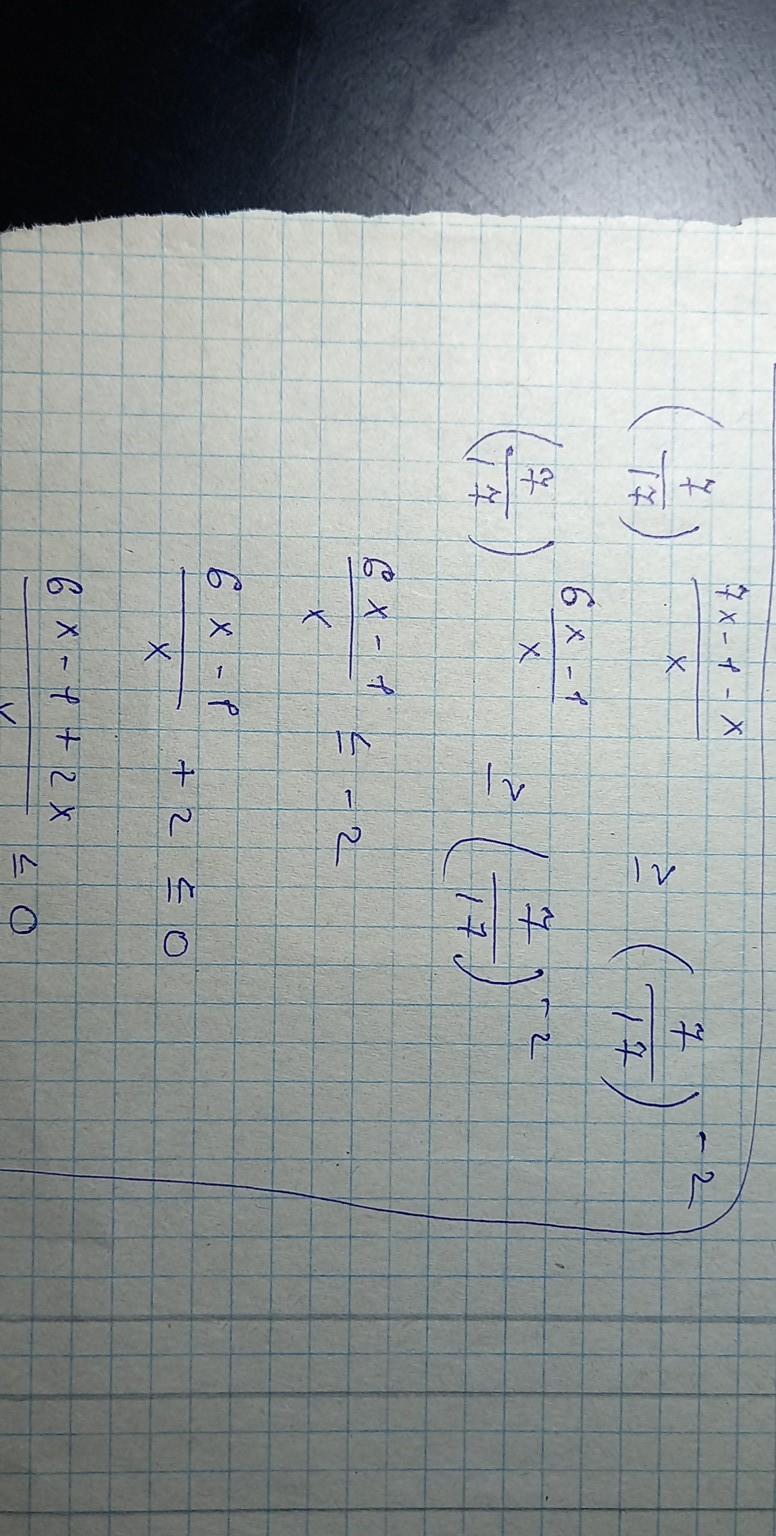 (7/17)^((7x-1-x)/x) ≥ (7/17)^(-2)
(7/17)^((6x-1)/x) ≥ (7/17)^(-2)
(6x-1)/x ≤ -2
(6x-1)/x + 2 ≤ 0
(6x-1+2x)/x ≤ 0